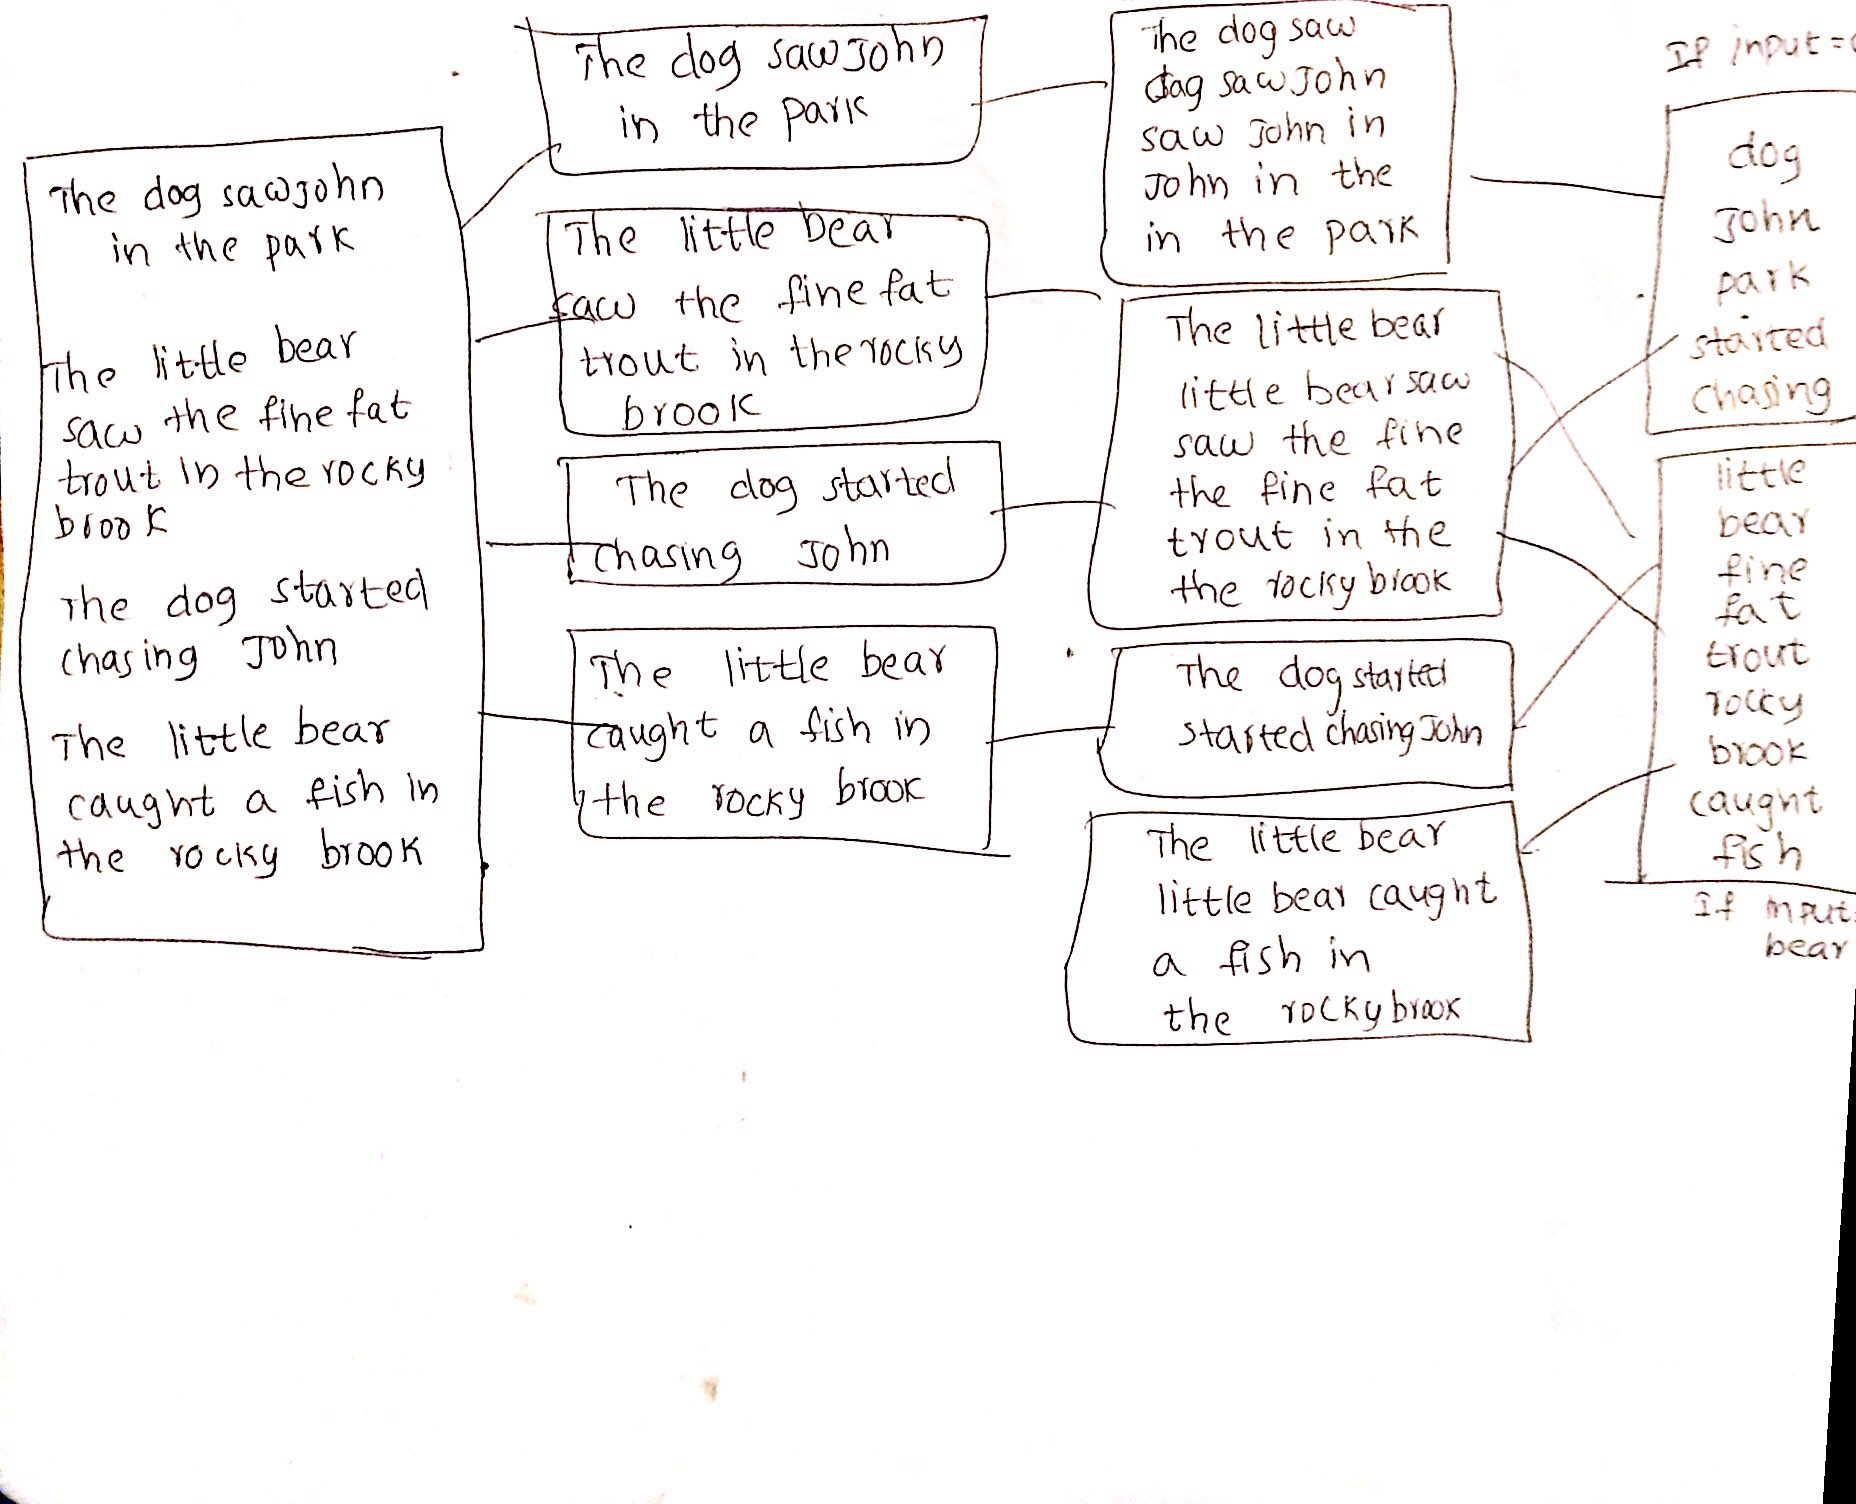 The dog saw John
in the park
The little bear
saw the fine fat
trout in the rocky
brook
The dog started
chasing John
The little bear
caught a fish in
the rocky brook
The dog saw John
in the park
The little bear
saw the fine fat
trout in the rocky
brook
The dog started
chasing John
The little bear
caught a fish in
the rocky brook
The dog saw
dog saw John
saw John in
John in the
in the park
The little bear
little bear saw
saw the fine
the fine fat
trout in the
the rocky brook
The dog started
started chasing John
The little bear
little bear caught
a fish in
the rocky brook
If input =
dog
John
park
started
chasing
little
bear
fine
fat
trout
rocky
brook
caught
fish
If input
bear